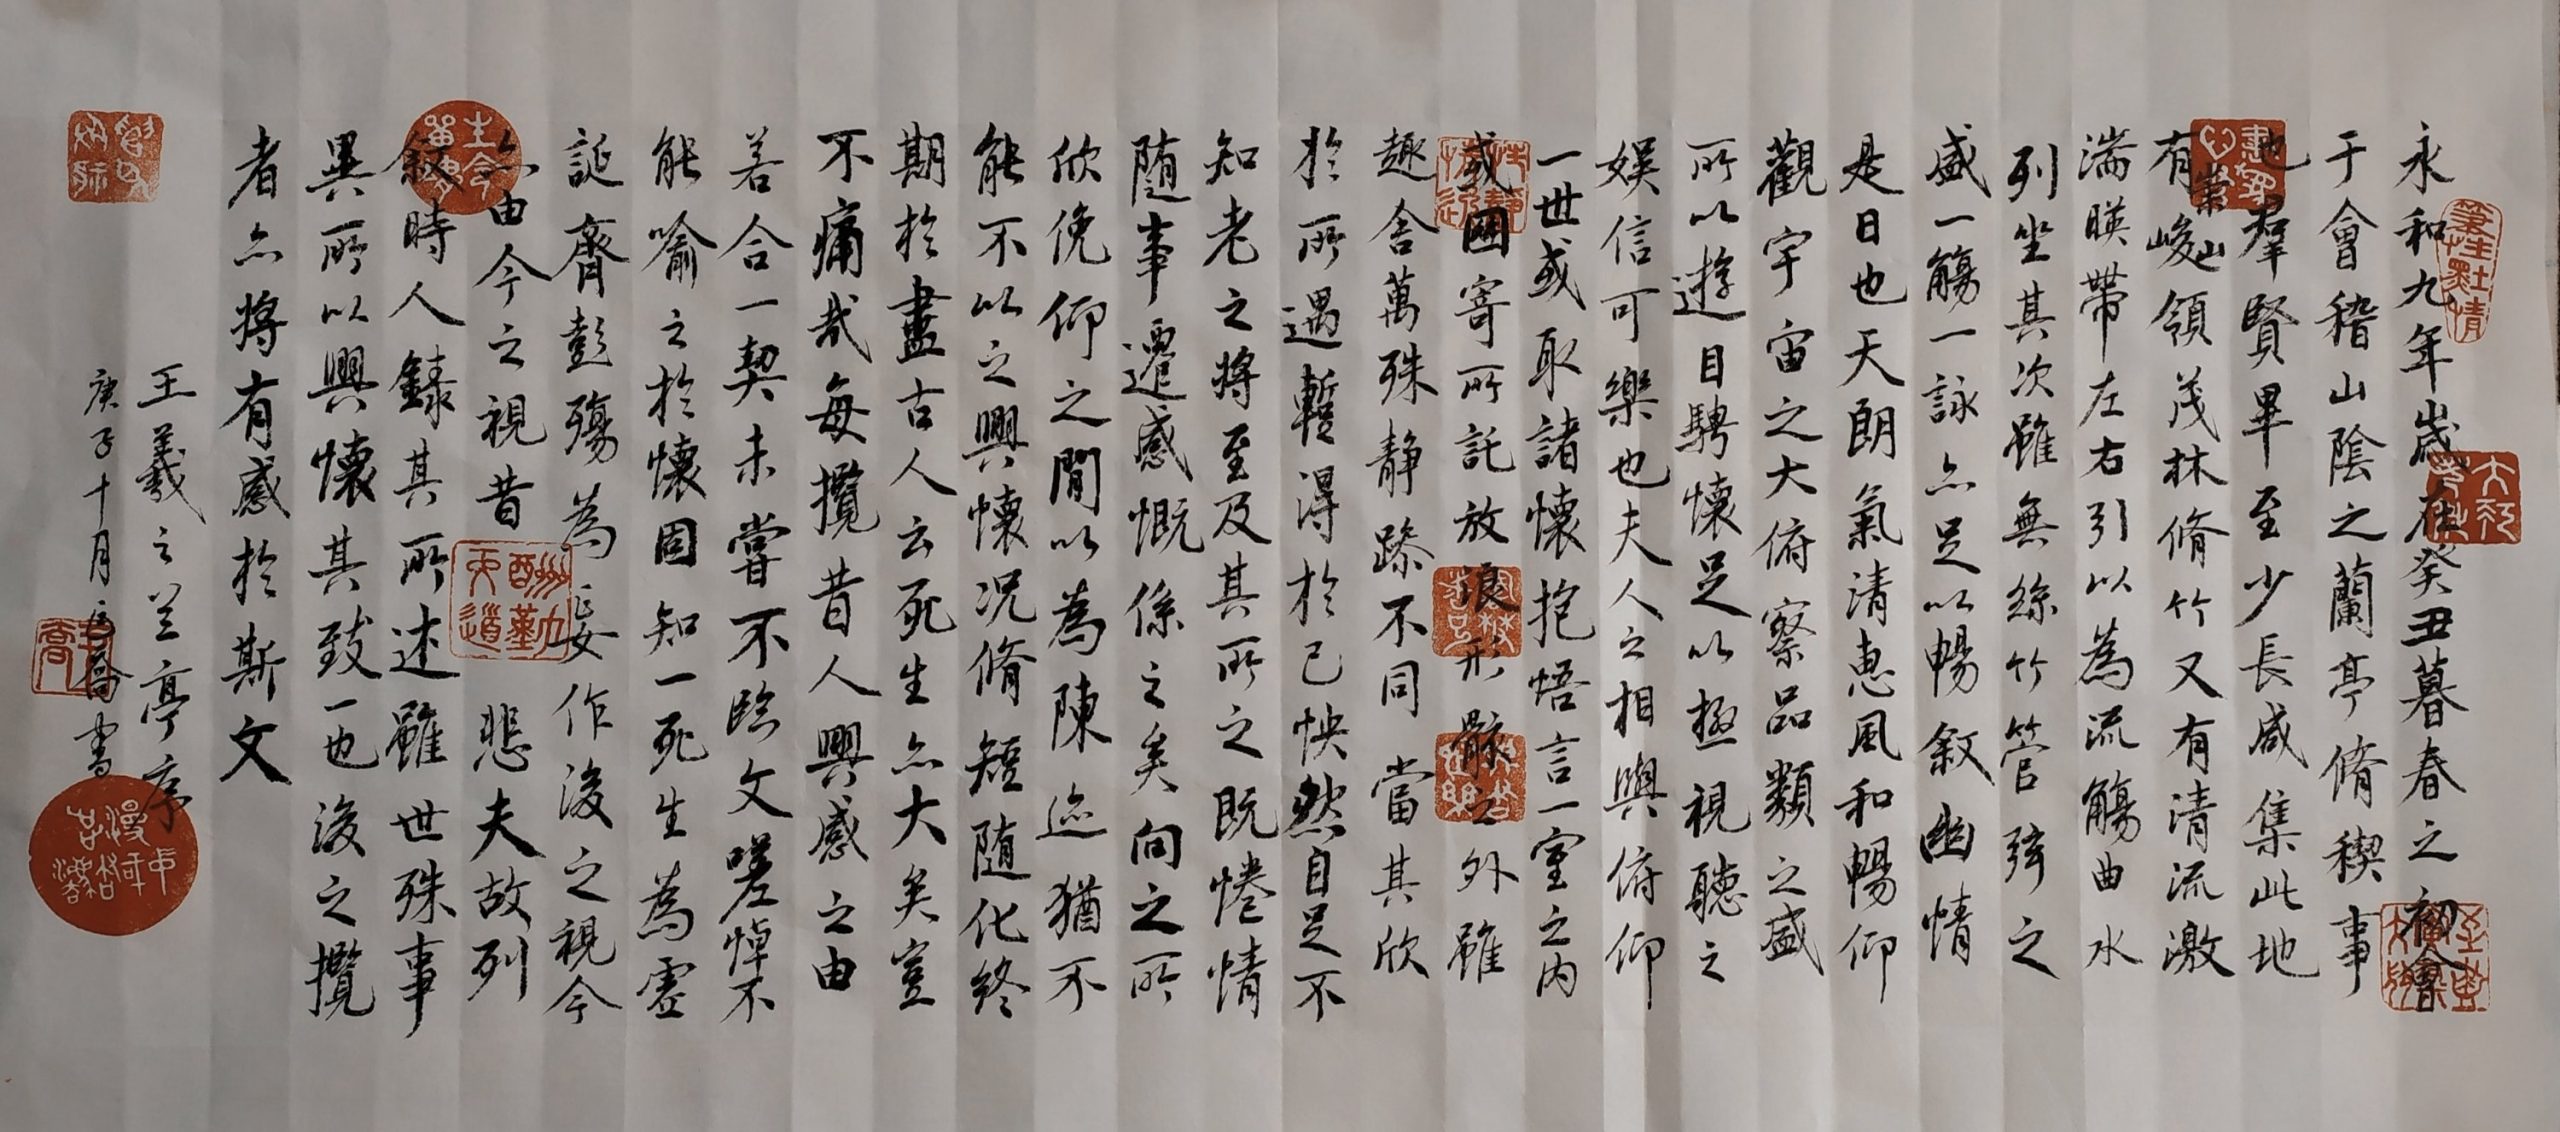 永和九年歲在癸丑暮春之初會
于會稽山陰之蘭亭脩稧事
也羣賢畢至少長咸集此地
有崇山峻領茂林脩竹又有清流激
湍暎帶左右引以為流觴曲水
列坐其次雖無絲竹管弦之
盛一觴一詠亦足以暢敘幽情
是日也天朗氣清惠風和暢仰
觀宇宙之大俯察品類之盛
所以遊目騁懷足以極視聽之
娛信可樂也夫人之相與俯仰
一世或取諸懷抱悟言一室之內
或因寄所託放浪形骸之外雖
趣舍萬殊静躁不同當其欣
於所遇暫得於己怏然自足不
知老之將至及其所之既惓情
随事遷感慨係之矣向之所
欣俛仰之間以為陳迹猶不
能不以之興懷況脩短随化終
期於盡古人云死生亦大矣豈
不痛哉每攬昔人興感之由
若合一契未嘗不臨文嗟悼不
能喻之於懷固知一死生為虛
誕齊彭殤為妄作後之視今
亦由今之視昔 悲夫故列
敘時人錄其所述雖世殊事
異所以興懷其致一也後之攬
者亦將有感於斯文
王羲之兰亭序
庚子十月 喬書
筆生墨情
酬勤
天道